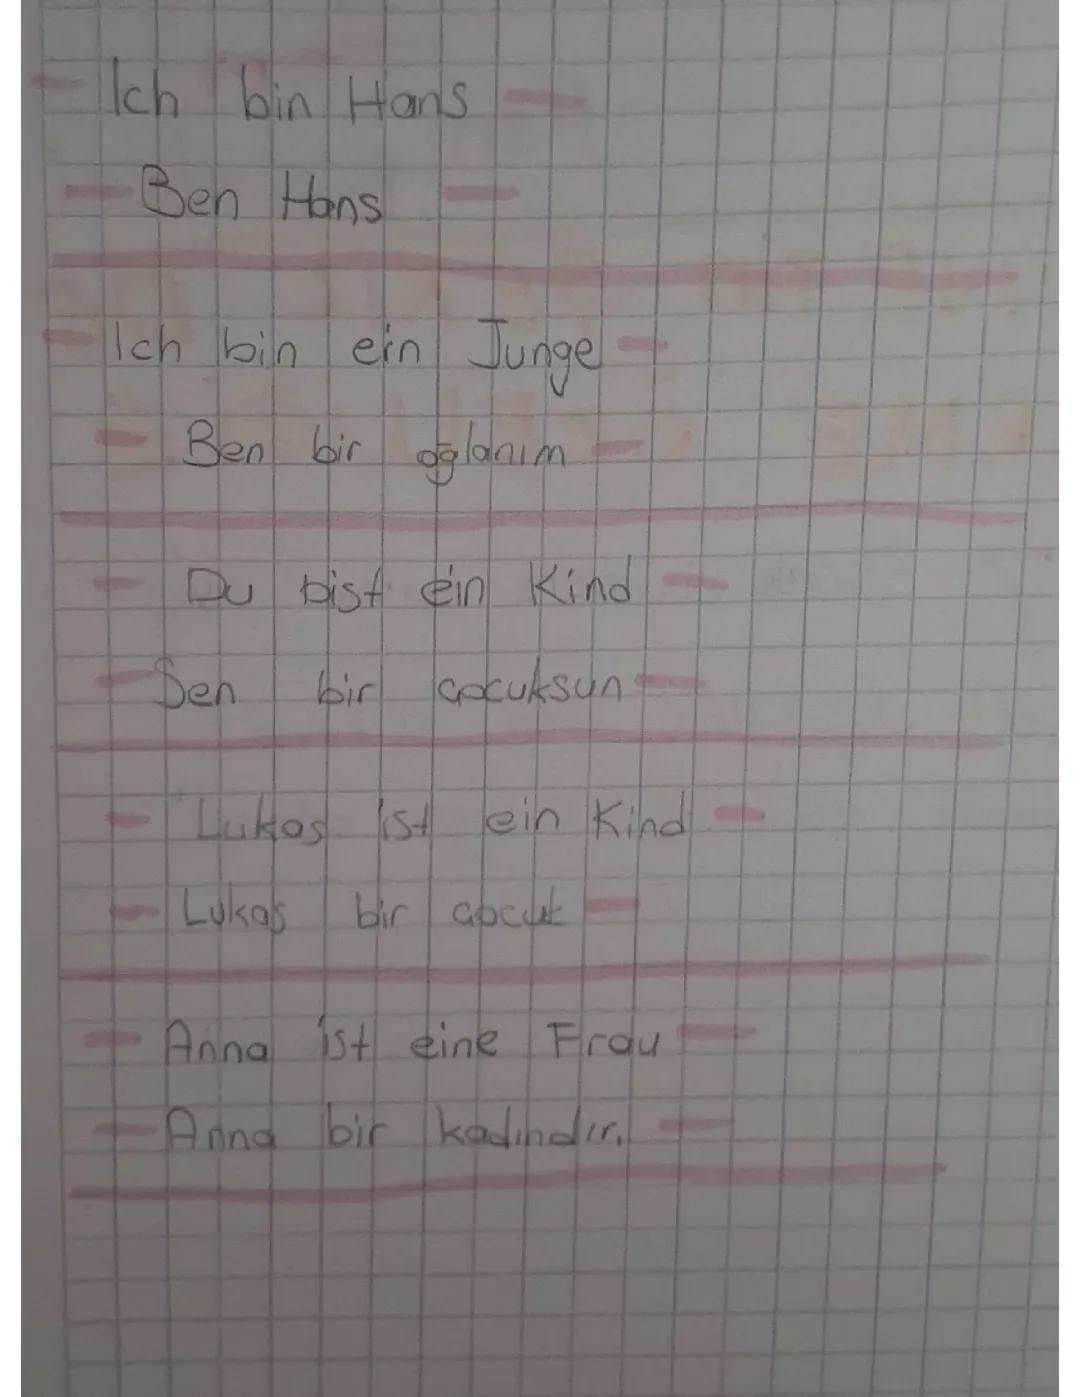 Ich bin Hans
Ben Hans
Ich bin ein Junge
Ben bir oğlanım
Du bist ein Kind
Sen bir çocuksun
Lukas ist ein Kind
Lukas bir çocuk
Anna ist eine Frau
Anna bir kadındır.